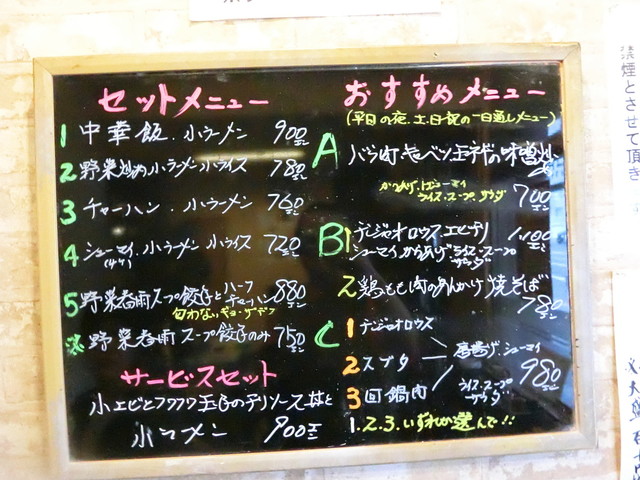 セットメニュー
1 中華飯. 小ラーメン 900円
2 野菜炒め 小ラーメン 小ライス 780円
3 チャーハン. 小ラーメン 760円
4 シューマイ. 小ラーメン 小ライス 720円
(4ケ)
5 野菜春雨スープ餃子とハーフチャーハン 880円
匂わないギョーザデス
野菜春雨スープ餃子のみ 750円
サービスセット
小エビとフワフワ玉子のチリソース丼と
小ラーメン 900円
おすすめメニュー
(平日の夜.土.日.祝の一日通しメニュー)
A バラ肉 キャベツ 玉ネギの味噌炒め
からあげ.シューマイ
ライス.スープ サラダ 700円
B 1 チンジャオロウス. エビチリ 1,100円
シューマイ.からあげ ライス.スープ
サラダ
2 鶏もも肉のあんかけ焼そば 780円
C 1 チンジャオロウス
2 スブタ
3 回鍋肉
唐揚げ.シューマイ
ライス.スープ
サラダ 980円
1.2.3.いずれか選んで!!
煙とさせて頂き